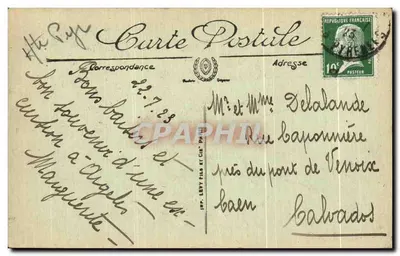 Hte Pyr
Carte Postale
Correspondance
Adresse
REPUBLIQUE FRANÇAISE
10c
POSTES
PYRENEES
22.7.23
Bons baisers et
bon souvenir d'une ex-
cursion à Argelès
Marguerite
IMP. LEVY FILS ET Cie PARIS
Mr et Mme Delalande
Rue Caponnière
près du pont de Venoix
Caen
Calvados